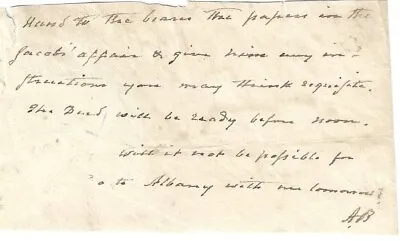 Hand to the bearer the papers in the
Jacobs' affair & give him any in-
structions you may think requisite.
The Deed will be ready before noon.
Will it not be possible for
to Albany with me tomorrow?
AB